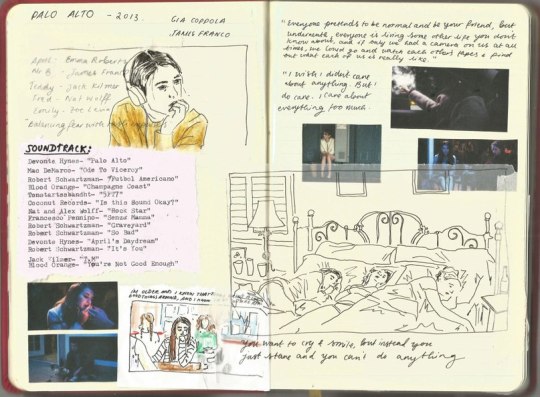 PALO ALTO - 2013
GIA COPPOLA
JAMES FRANCO
April: Emma Roberts
Mr B. - James Franco
Teddy - Jack Kilmer
Fred - Nat Wolff
Emily - Zoe Levin
SOUNDTRACK:
Devonte Hynes- "Palo Alto"
Mac DeMarco- "Ode To Viceroy"
Robert Schwartzman- "Futbol Americano"
Blood Orange- "Champagne Coast"
Coconut Records- "Is this Sound Okay?"
Nat and Alex Wolff- "Rock Star"
Francesco Pennino- "Senza Mamma"
Robert Schwartzman- "Graveyard"
Robert Schwartzman- "So Bad"
Devonte Hynes- "April's Daydream"
Robert Schwartzman- "It's You"
Jack Kilmer- "T.M"
Blood Orange- "You're Not Good Enough"
I'M OLDER AND I KNOW THAT
GOOD THINGS AROUND, AND I KNOW
"Everyone pretends to be normal and be your friend, but
underneath, everyone is living some other life you don't
know about, and if only we had a camera on us at all
times, we could go and watch each others tapes & find
out what each of us is really like."
"I wish I didn't care
about anything. But I
do care. I care about
everything too much.
you want to cry & smile, but instead you
just stare and you can't do anything